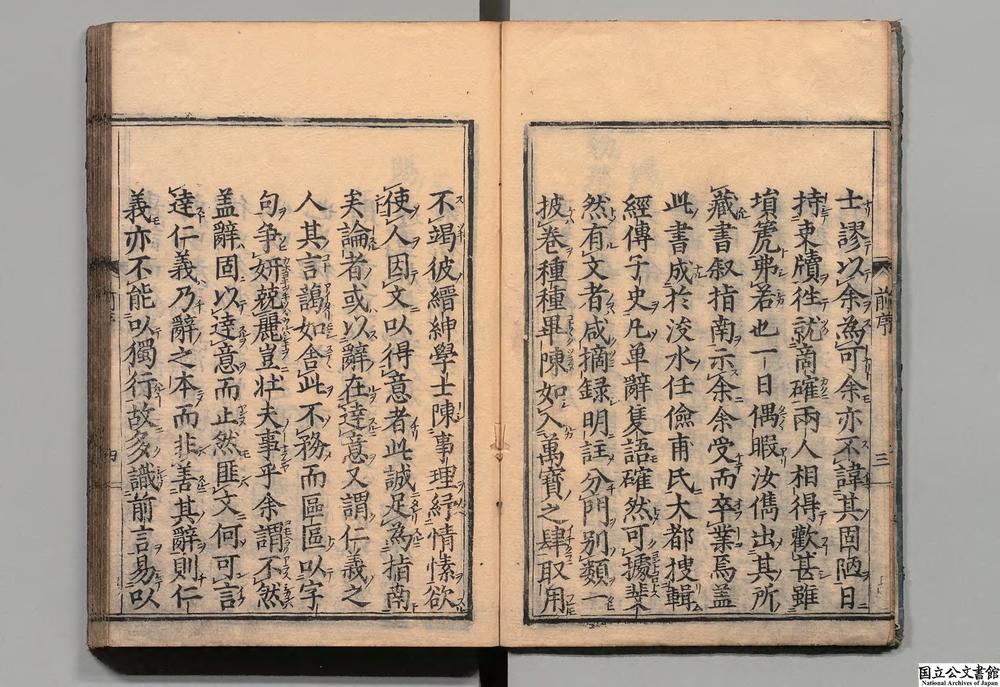 士謬以余為可余亦不諱其固陋日
持束牘徃就商確兩人相得歡甚雖
塤箎弗若也一日偶暇汝儁出其所
藏書叙指南示余余受而卒業焉盖
此書成於浚水任儉甫氏大都搜輯
經傳子史凡单辭隻語確然可據斐
然有文者咸摘録明註分門别類一
披卷種種畢陳如入萬寶之肆取用
前序
三
不竭彼縉紳學士陳事理紓情愫欲
使人因文以得意者此誠足為指南
矣論者或以辭在達意又謂仁義之
人其言藹如舍此不務而區區以字
句争妍競麗豈壯夫事乎余謂不然
盖辭固以達意而止然匪文何可言
達仁義乃辭之本而非善其辭則仁
義亦不能以獨行故多識前言易以
前序
四
国立公文書館
National Archives of Japan